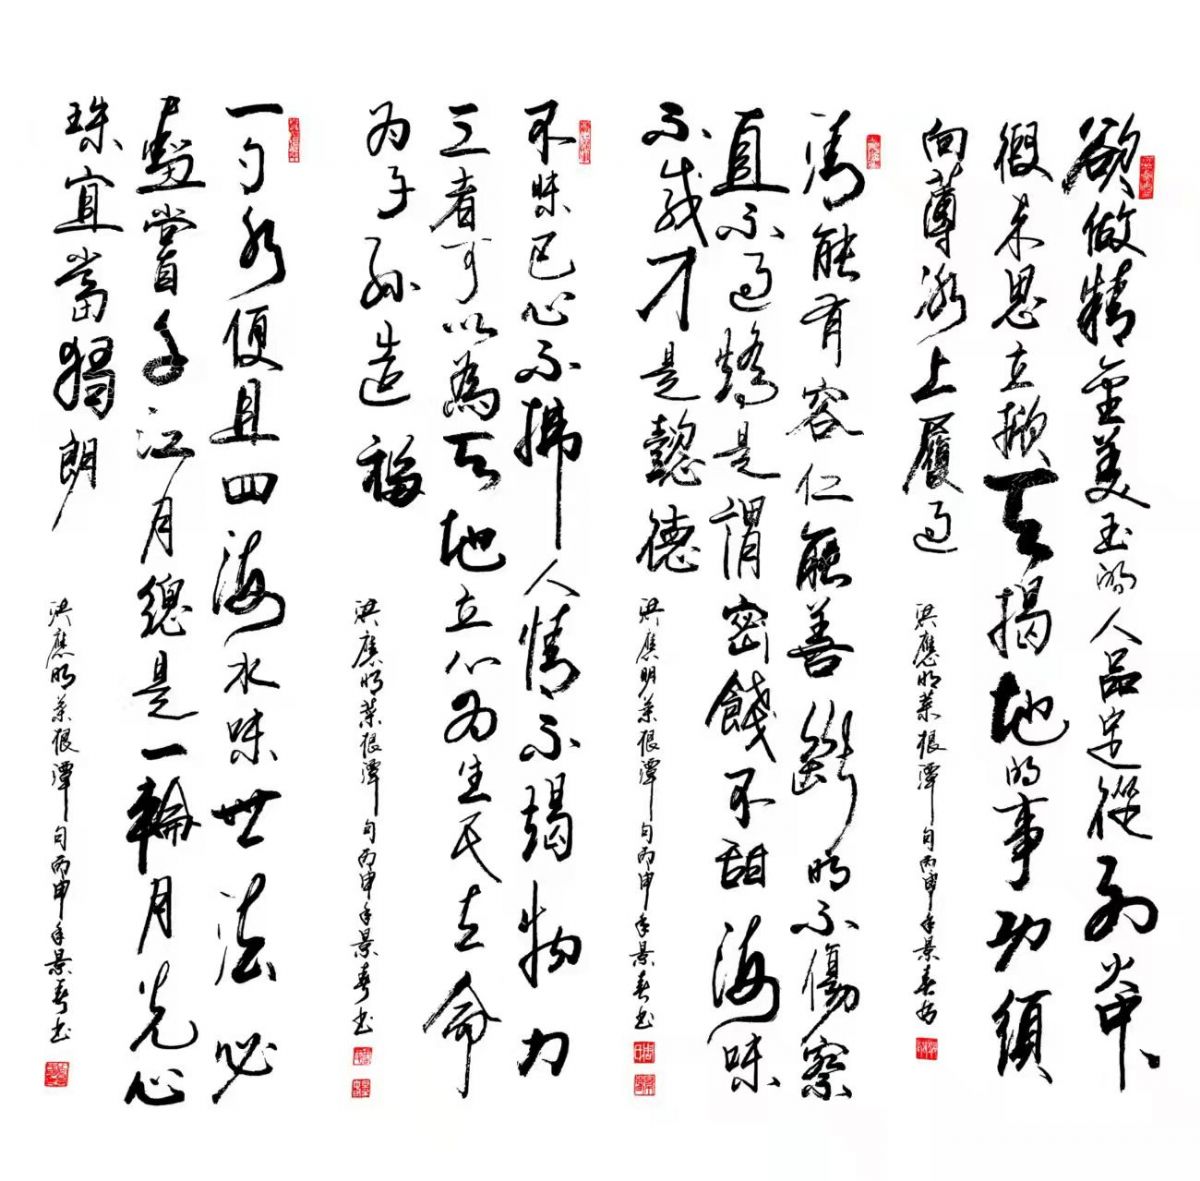 欲做精金美玉的人品定從列火中
煅来思立掀天揭地的事功須
向薄冰上履过
洪應明菜根潭句丙申年景春書
清能有容仁能善斷明不傷察
直不过矯是謂密餞不甜海味
不咸才是懿德
洪應明菜根潭句丙申年景春书
不昧己心不拂人情不竭物力
三者可以為天地立心为生民立命
为子孫造福
洪應明菜根潭句丙申年景春书
一勺水便且四海水味世法必
盡嘗千江月總是一輪月光心
珠宜當獨朗
洪應明菜根潭句丙申年景春书